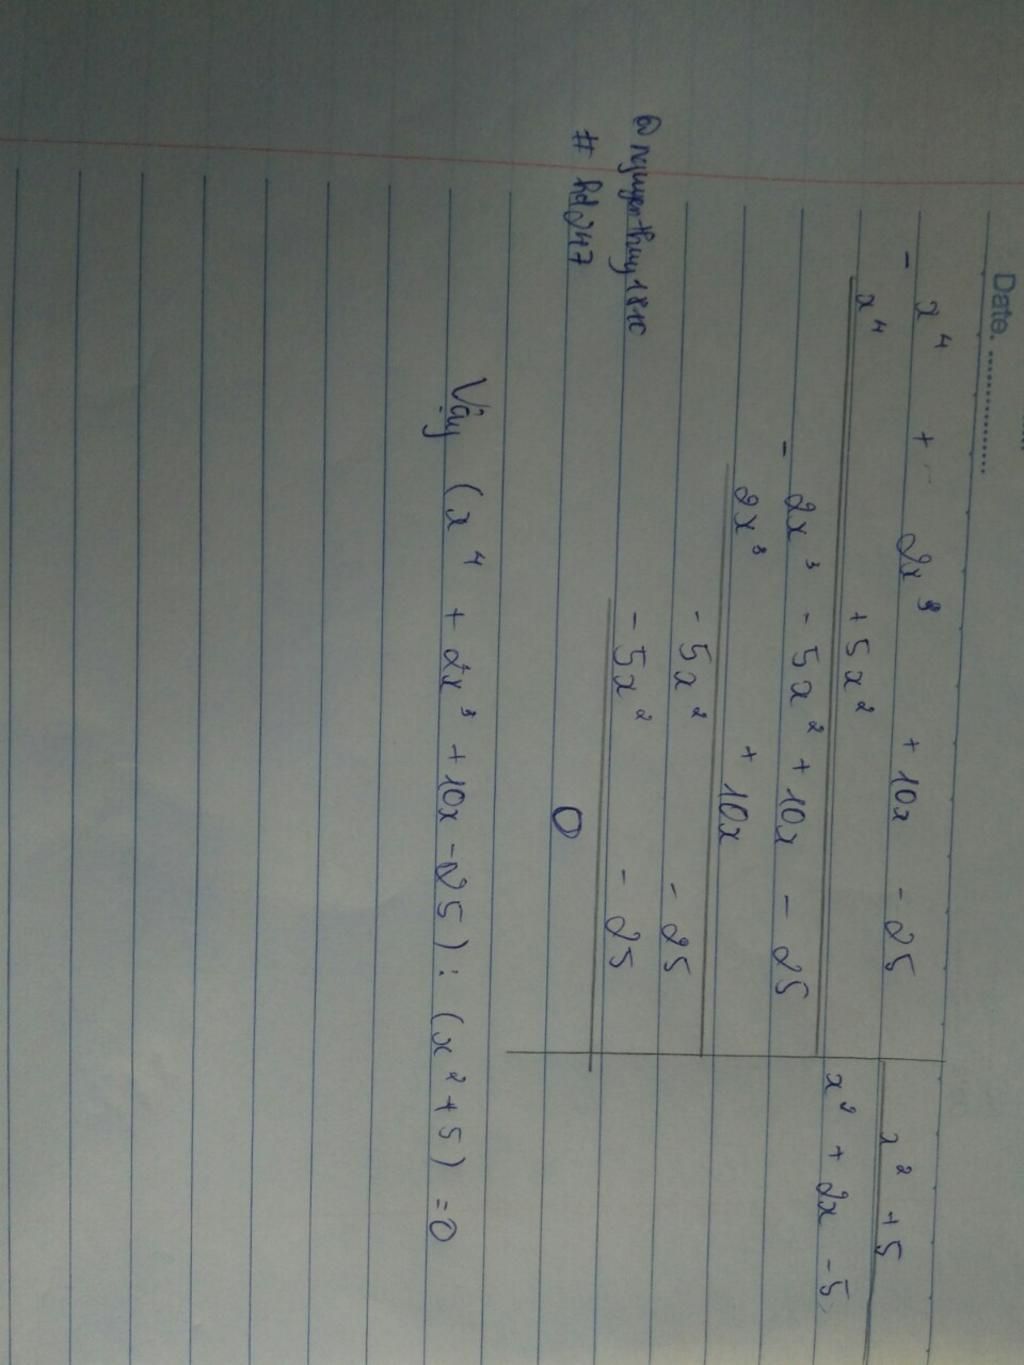 Date. ..............
- x⁴ + 2x³ + 10x - 25 x² + 5
x⁴ + 5x² x² + 2x - 5
- 2x³ - 5x² + 10x - 25
2x³ + 10x
- 5x² - 25
- 5x² - 25
0
@nguyenthuy1810
# hd247
Vậy (x⁴ + 2x³ + 10x - 25) : (x² + 5) = 0